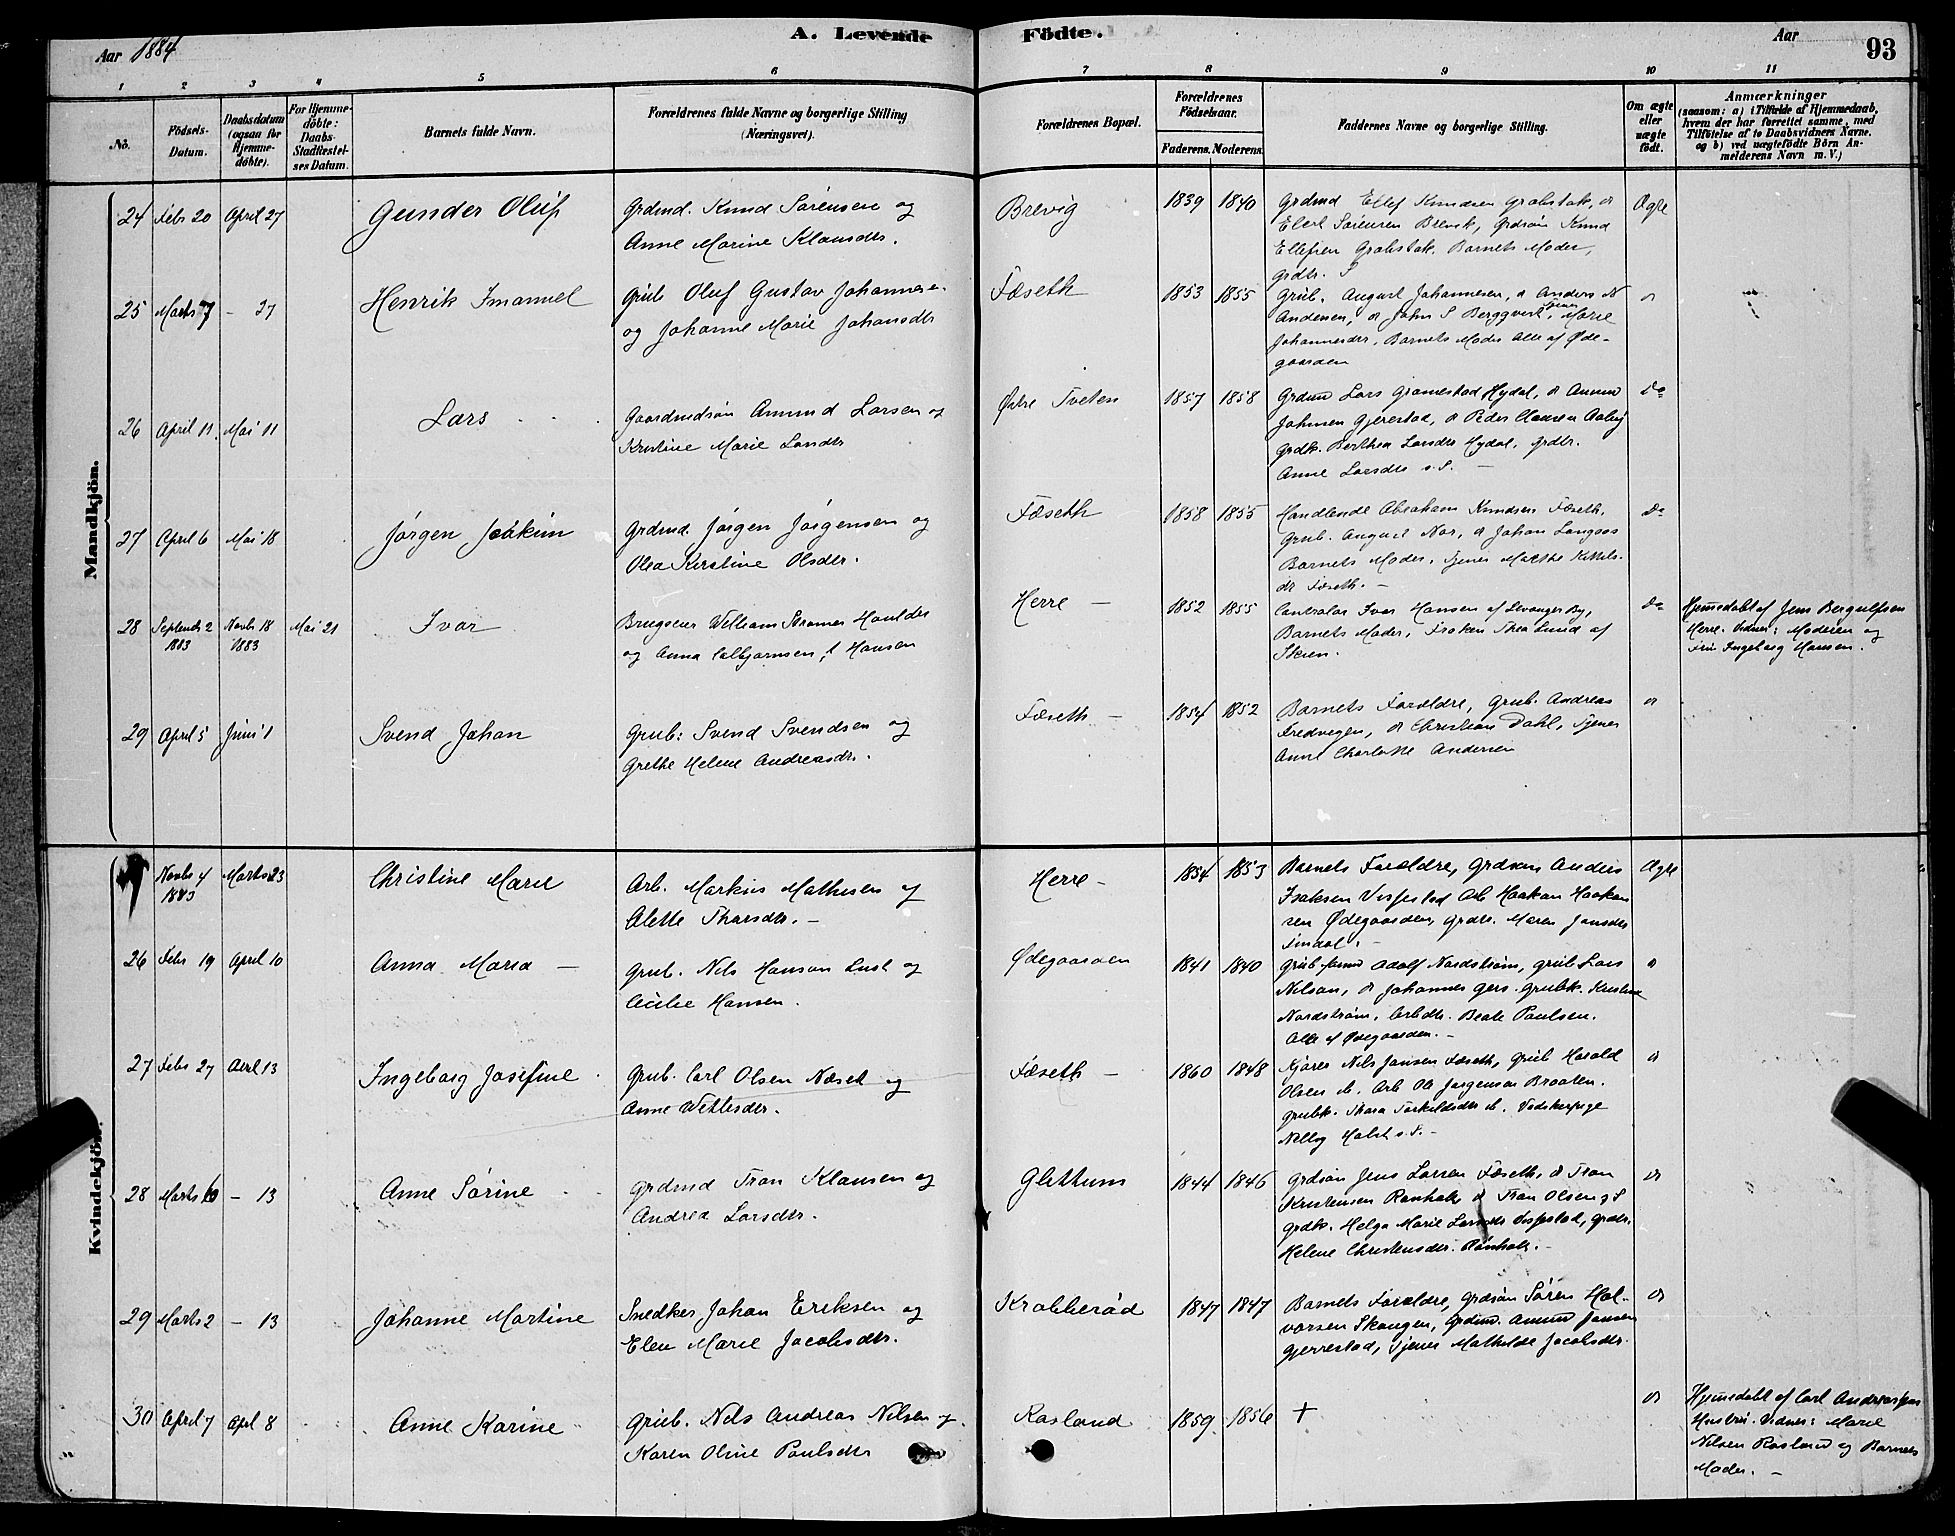 Aar 1884
A. Levende Födte.
Aar
93
1 2 3 4 5 6 7 8 9 10 11
No.
Födsels-Datum.
Daabsdatum (ogsaa for Hjemmedöbte).
For Hjemmedöbte: Daabs-Stadfæstelses Datum.
Barnets fulde Navn.
Forældrenes fulde Navne og borgerlige Stilling (Næringsvei).
Forældrenes Bopæl.
Forældrenes Födselsaar.
Faderens. Moderens.
Faddernes Navne og borgerlige Stilling.
Om ægte eller uægte födt.
Anmærkninger
(saasom: a) i Tilfælde af Hjemmedaab, hvem der har forrettet samme, med Tilföielse af to Daabsvidners Navne. og b) ved uægtefödte Börn Anmelderens Navn m. V.)
Mandkjön.
24 Febr 20 April 27 Gunder Oluf
Grdmd. Knud Sørensen og
Anne Marine Klausdtr.
Brevig 1839 1840
Grdmd Ellef Knudsen Grobstok, do
Elert Sørensen Brevik, Grdsøn Knud
Ellefsen Grobstok. Barnets Moder,
Grdtr. S
Ægte
25 Marts 7 – 27 Henrik Imanuel
Grub Oluf Gustav Johannesen
og Johanne Marie Johansdtr
Fæseth 1853 1855
Grub. August Johannesen, do Anders N
Andersen, do John S Bergqvist, Tjener Marie
Johannesdtr, Barnets Moder alle af Øde-
gaarden
do
26 April 11. Mai 11 Lars
Gaardmdsøn Amund Larsen og
Kristine Marie Larsdtr
Østre Tveten 1857 1858
Grdmd Lars Gromestad Hydal, do Amund
Johnsen Gjerestad, do Peder Clausen Aaby
Grdk. Berthea Larsdtr Hydal, Grdtr.
Anne Larsdtr s. S. –
do
27 April 6 Mai 18 Jørgen Joakim
Grdmd. Jørgen Jørgensen og
Olea Kirstine Olsdtr.
Fæseth 1858 1855
Handlende Abraham Knudsen Fæseth,
Grub. August Nor, do Johan Langaas
Barnets Moder, Tjener Marthe Kittels-
dtr Fæseth. –
do
28 Septembr 2 1883 Novbr 18 1883 Mai 21 Ivar
Brugseier William Stromer Houlder
og Anna Colbjørnsen, f Hansen
Herre – 1852 1855
Controlør Ivar Hansen af Levanger By,
Barnets Moder, Frøken Thea Lund af
Skien.
do
Hjemmedøbt af Jens Bergulfsen
Herre. Vidner: Moderen og
Frue Ingeborg Hansen.
29 April 5 Juni 1 Svend Johan
Grub: Svend Svendsen og
Grethe Helene Andreasdtr.
Fæseth – 1854 1852
Barnets Forældre, Grub. Andreas
Fredvegen, do Christian Dahl, Tjener
Anne Charlotte Andersen
do
Kvindekjön.
Novbr 4 1883 Marts 23 Christine Marie
Arb. Markus Mathisen og
Alette Thorsdtr. –
Herre – 1854 1853
Barnets Forældre, Grdsøn Anders
Isaksen Visfestad Arb Haakon Haakon-
sen Ødegaarden, Grdtr. Maren Jansdtr
Findal. –
Ægte
26 Febr 19 April 10 Anna Maria –
Grub. Nils Hanson Lust og
Cicilie Hansen.
Ødegaarden 1841 1840
Grub Adolf Nordstrøm, Grub Lars
Nilson, do Johannes Gers. Grubk. Kristine
Nordstrøm, Arbdtr. Beate Paulsen.
Alle af Ødegaarden. –
do
27 Febr 27 Avril 13 Ingeborg Josefine
Grub. Carl Olsen Næset og
Anne Wetlesdtr.
Fæseth – 1860 1848
Kjører Nils Jansen Fæseth, Grub Harald
Olsen ib. Arb Ole Jørgensen Braaten.
Grubk. Thora Torkildsdtr ib. Vaskerpige
Nelly Holst s. S. –
do
28 Marts 10 – 13 Anne Sørine
Grdmd Tron Klausen og
Andrea Larsdtr.
Glittum 1844 1846
Grdsøn Jens Larsen Fæseth, do Tron
Kristensen Rønholt do Tron Olsen s S
Grdk. Helga Marie Larsdtr Visfestad, Grdtr.
Helene Christensdtr. Rønholt. –
do
29 Marts 2 – 13 Johanne Martine
Snedker Johan Eriksen og
Elen Marie Jacobsdtr.
Krabberød 1847 1847
Barnets Forældre, Grdsøn Søren Hal-
vorsen Skougen, Grdmd. Amund Jansen
Gjerrestad, Tjener Mathilde Jacobsdtr.
do
30 April 7 April 8 Anne Karine
Grub. Nels Andreas Nilsen og
Karen Oline Paulsdtr
Rosland 1859 1856 +
do
Hjemmedøbt af Carl Andreassens
Hustru. Vidner: Marie
Nilsen Rosland og Barnets
Moder. –